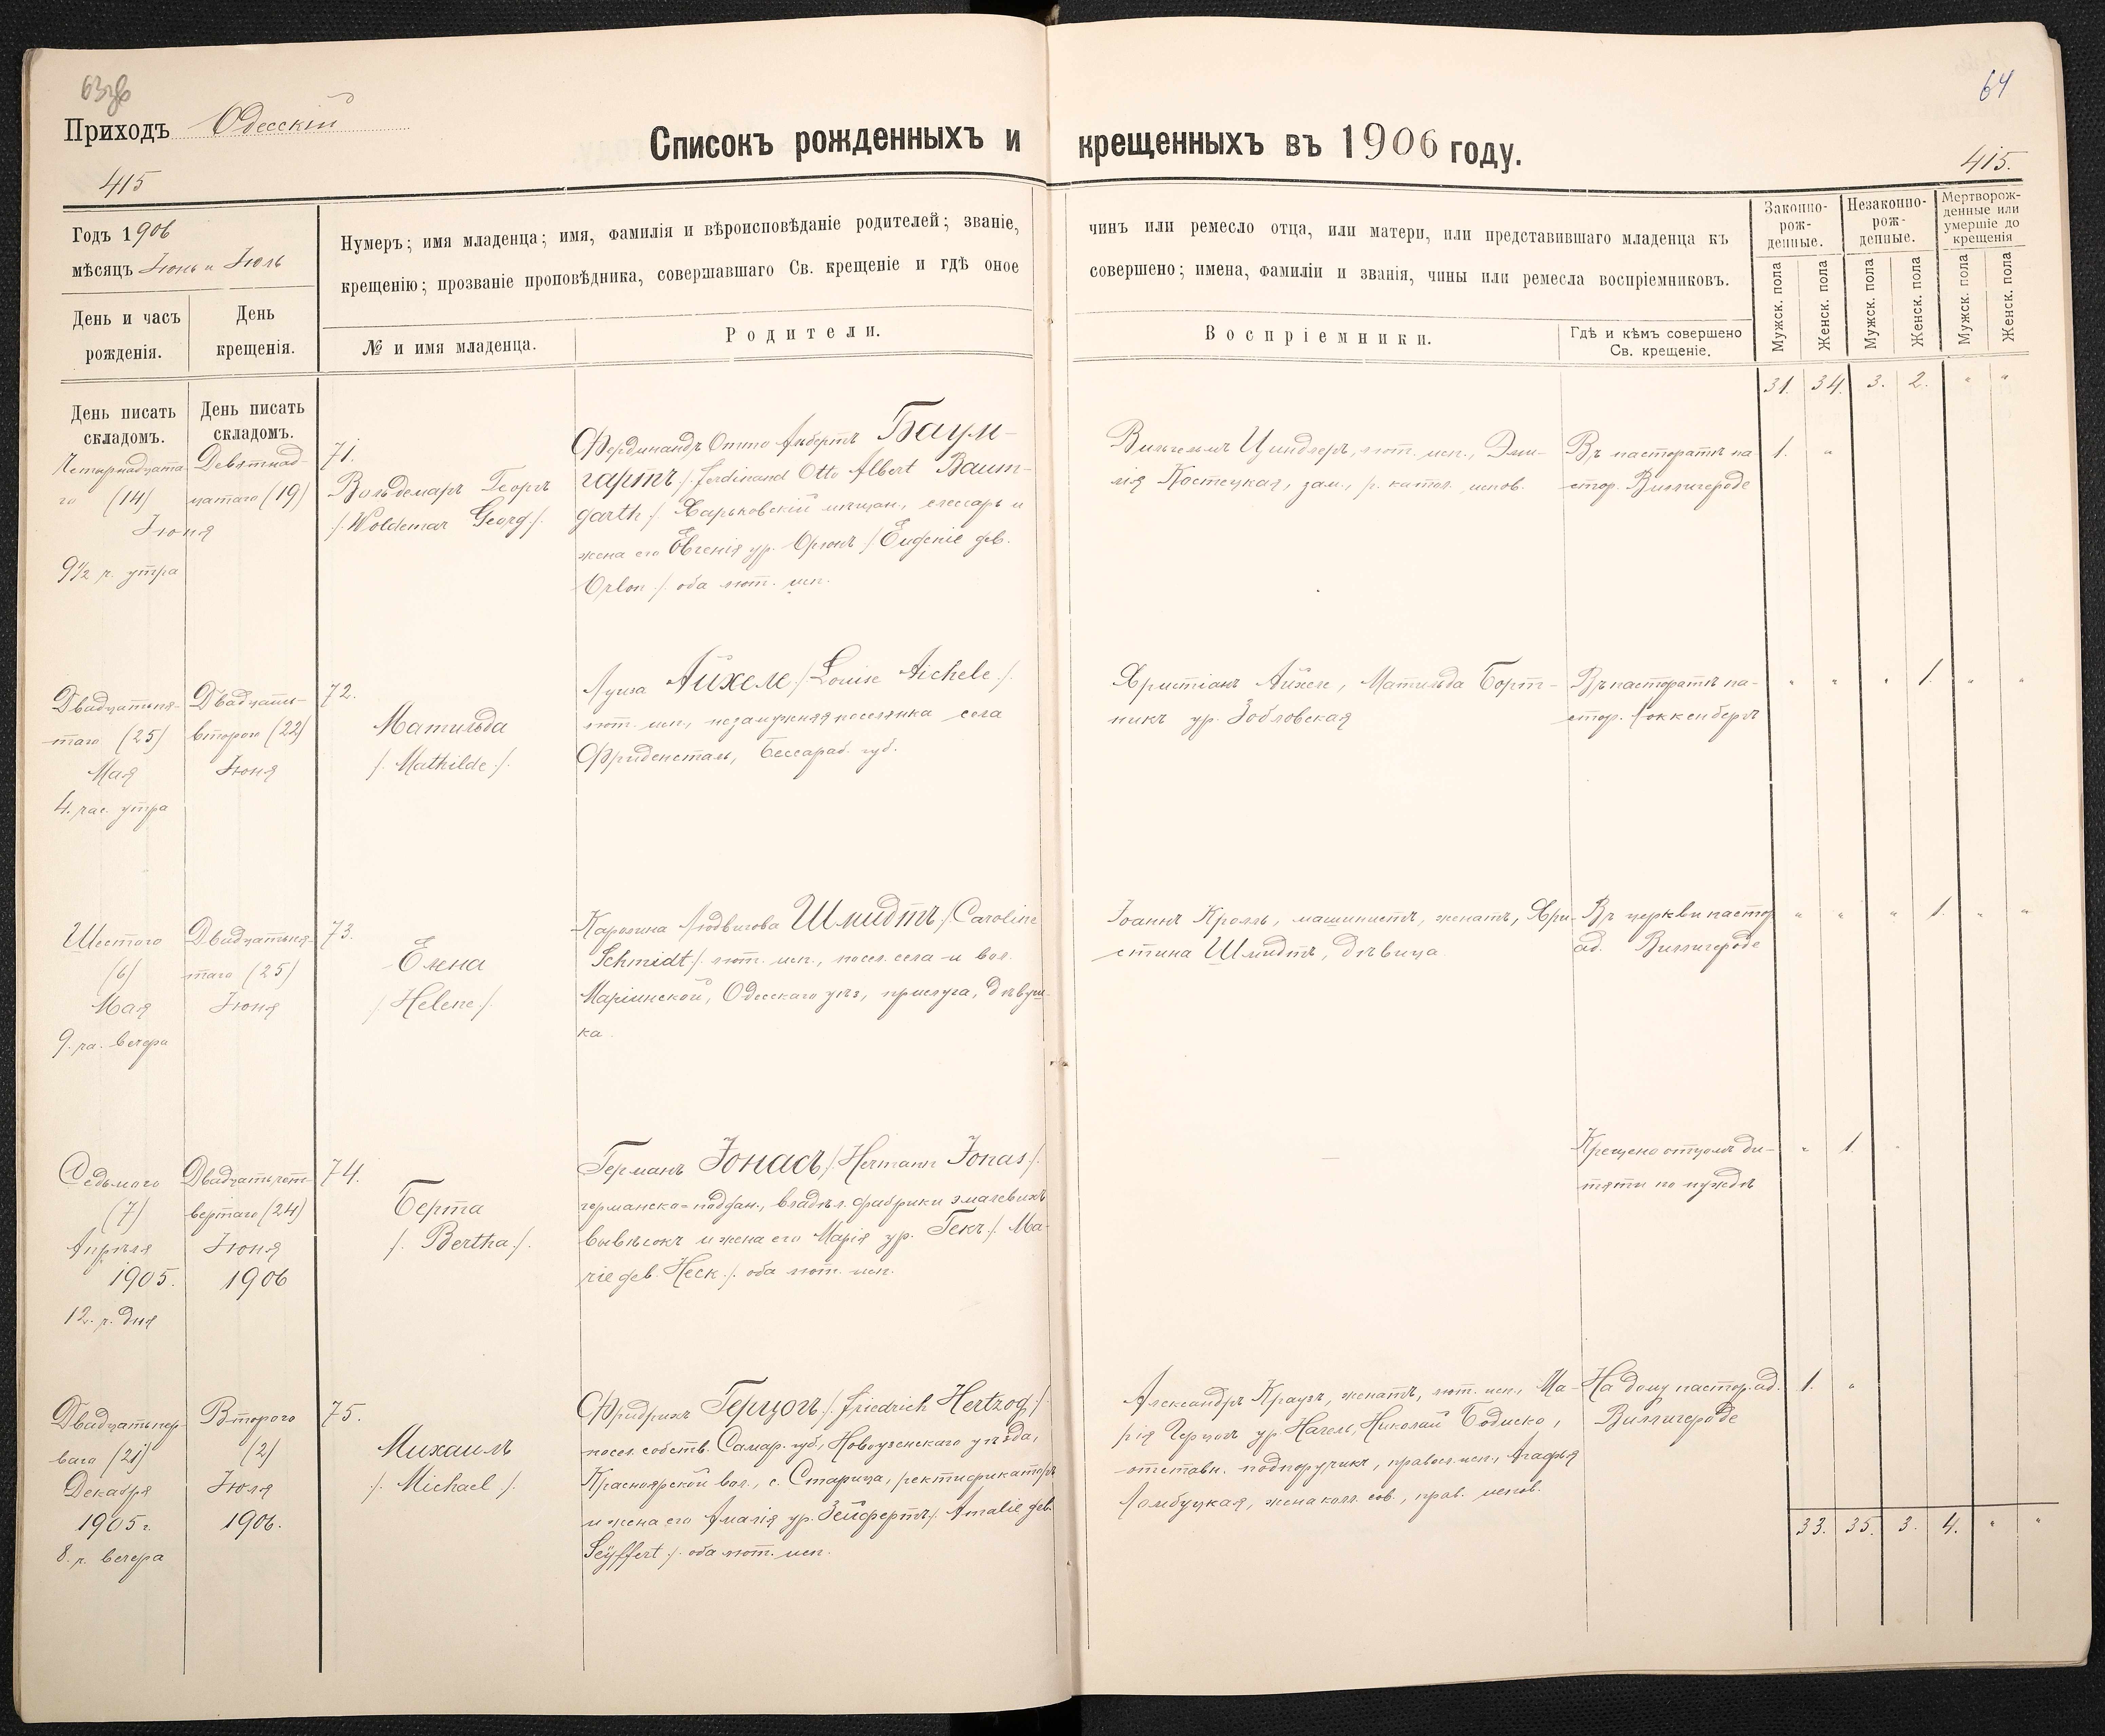 63об
64
Приходъ Одесскій
Списокъ рожденныхъ и крещенныхъ въ 1906 году.
415
415.
Годъ 1906
мѣсяцъ Іюнь и Іюль
День и часъ рожденія.
День крещенія.
Нумеръ; имя младенца; имя, фамилія и вѣроисповѣданіе родителей; званіе,
крещенію; прозваніе проповѣдника, совершавшаго Св. крещеніе и гдѣ оное
№ и имя младенца.
Родители.
чинъ или ремесло отца, или матери, или представившаго младенца къ
совершено; имена, фамиліи и званія, чины или ремесла воспріемниковъ.
Воспріемники.
Гдѣ и кѣмъ совершено
Св. крещеніе.
Законно-
рож-
денные.
Незаконно-
рож-
денные.
Мертворож-
денные или
умершіе до
крещенія
Мужск. пола
Женск. пола
Мужск. пола
Женск. пола
Мужск. пола
Женск. пола
31. 34. 3. 2. " "
День писать
складомъ.
День писать
складомъ.
Четырнадцата-
го (14)
Іюня
9½ ч. утра
Девятнад-
цатаго (19)
71.
Вольдемаръ Георгъ
/. Woldemar Georg /.
Фердинандъ Отто Альбертъ Баум-
гартъ /. Ferdinand Otto Albert Baum-
garth /. Харьковскій мѣщан., слесарь и
жена его Евгенія ур. Орлонъ /. Eugenie geb.
Orlon /. оба лют. исп.
Вильгельмъ Циндлеръ, лют. исп., Эми-
лія Костецкая, зам., р. катол. испов.
Въ пасторатѣ па-
стор. Виллигероде
1. "
Двадцатьпя-
таго (25)
Мая
4. час. утра
Двадцать-
второго (22)
Іюня
72.
Матильда
/. Mathilde /.
Луиза Айхеле /. Louise Aichele /.
лют. исп., незамужняя поселянка села
Фриденсталь, Бессараб. губ.
Христіанъ Айхеле, Матильда Борт-
никъ ур. Зобловская
Въ пасторатѣ па-
стор. Локкенбергъ
" " " 1. " "
Шестого
(6)
Мая
9. ча. вечера
Двадцатьпя-
таго (25)
Іюня
73.
Елена
/. Helene /.
Каролина Людвигова Шмидтъ /. Caroline
Schmidt /. лют. исп., посел. села и вол.
Маріинской, Одесскаго уѣз, прислуга, дѣвуш-
ка.
Іоаннъ Кролль, машинистъ, женатъ, Хри-
стина Шмидтъ, дѣвица
Въ церкви пастор
ад. Виллигероде
" " " 1. " "
Седьмого
(7)
Апрѣля
1905.
12. ч. дня
Двадцатьчет-
вертаго (24)
Іюня
1906
74.
Берта
/. Bertha /.
Германъ Іонасъ /. Hermann Jonas /.
германско-поддан., владѣл. фабрики эмалевыхъ
вывѣсокъ и жена его Марія ур. Гекъ /. Ma-
rie geb. Heck /. оба лют. исп.
—
Крещено отцомъ ди-
тяти по нуждѣ
" 1. "
Двадцатьпер-
ваго (21)
Декабря
1905 г.
8. ч. вечера
Второго
(2)
Іюля
1906.
75.
Михаилъ
/. Michael /.
Фридрихъ Герцогъ /. Friedrich Hertzog /.
посел. собств. Самар. губ., Новоузенскаго уѣзда,
Красноярской вол., с. Старица, ректификаторъ
и жена его Амалія ур. Зейфертъ /. Amalie geb.
Seyffert /. оба лют. исп.
Александръ Краузъ, женатъ, лют. исп., Ма-
рія Герцогъ ур Нагель, Николай Бодиско,
отставн. подпоручикъ, правосл. исп., Агафья
Ломбуцкая, жена колл. сов., прав. испов.
На дому пастор. ад.
Виллигероде
1. "
33. 35. 3. 4. " "